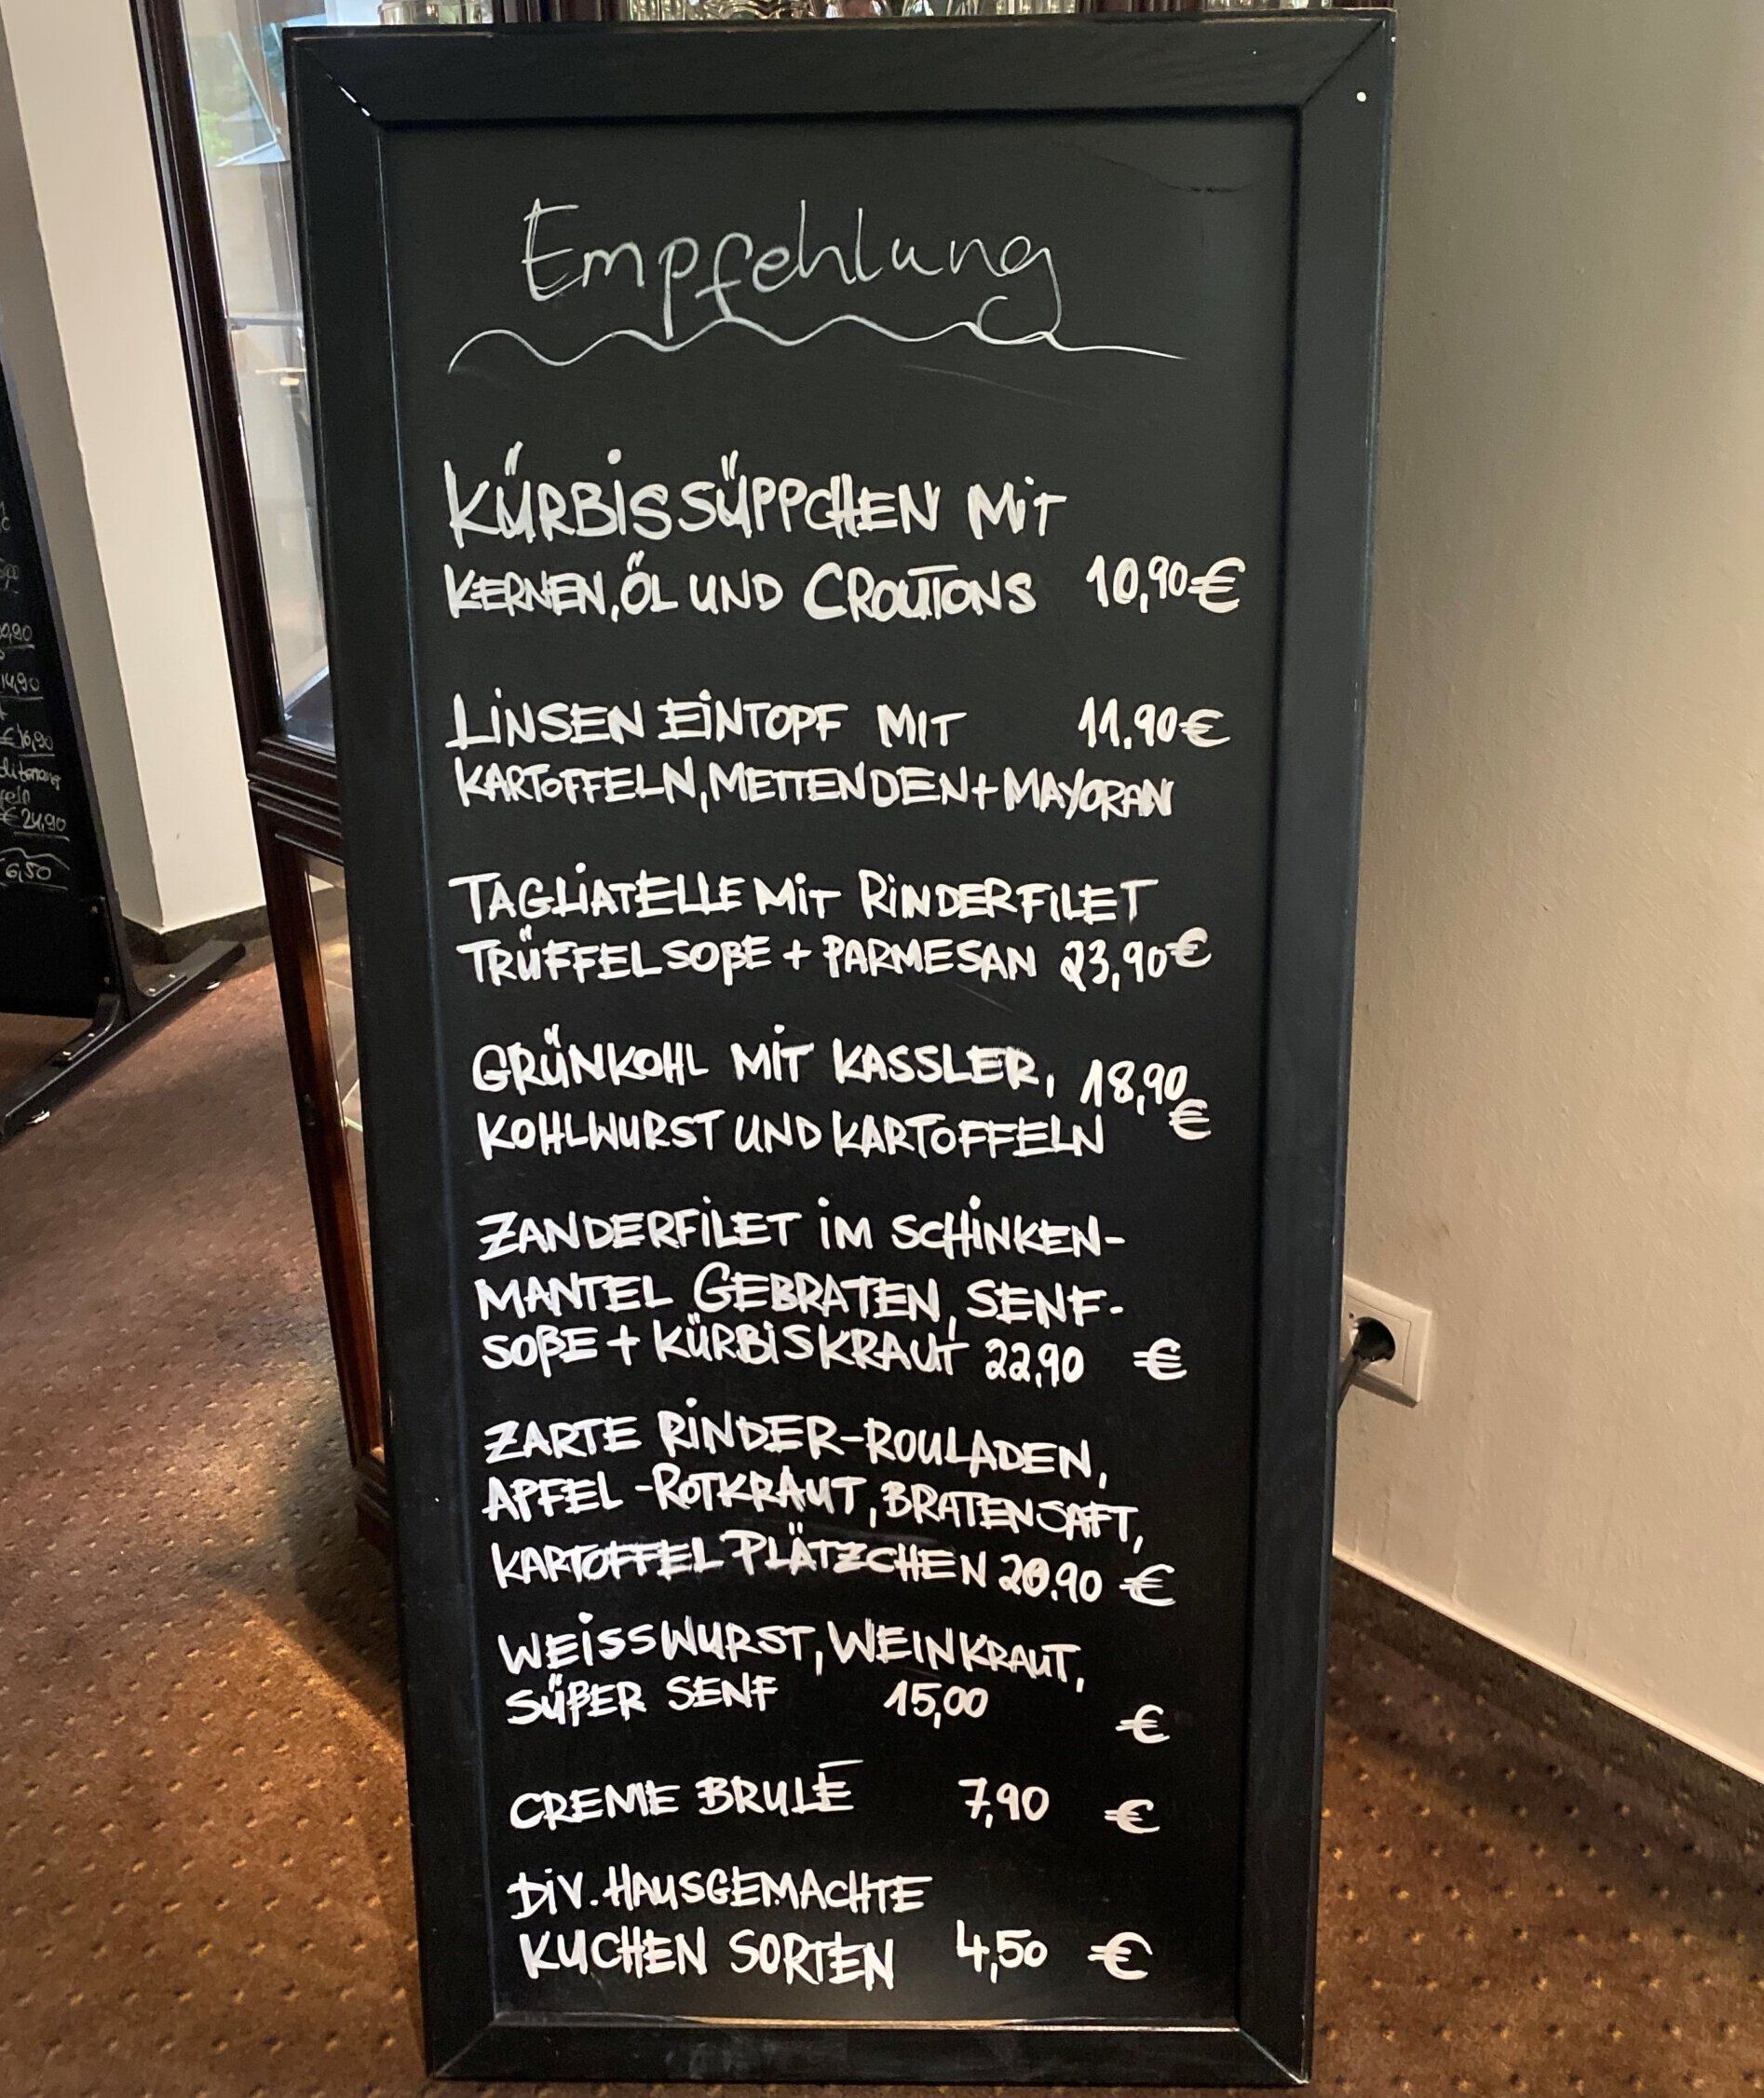 Empfehlung
KÜRBISSÜPPCHEN MIT
KERNEN, ÖL UND CROUTONS 10,90€
LINSEN EINTOPF MIT 11,90€
KARTOFFELN, METTENDEN + MAYORAN
TAGLIATELLE MIT RINDERFILET
TRÜFFELSOßE + PARMESAN 23,90€
GRÜNKOHL MIT KASSLER, 18,90
KOHLWURST UND KARTOFFELN €
ZANDERFILET IM SCHINKEN-
MANTEL GEBRATEN, SENF-
SOßE + KÜRBISKRAUT 22,90 €
ZARTE RINDER-ROULADEN,
APFEL-ROTKRAUT, BRATENSAFT,
KARTOFFEL PLÄTZCHEN 20.90 €
WEISSWURST, WEINKRAUT,
SÜßER SENF 15,00 €
CREME BRULÉ 7,90 €
DIV. HAUSGEMACHTE
KUCHEN SORTEN 4,50 €
14,90
€ 16,90
€ 24,90
6,50